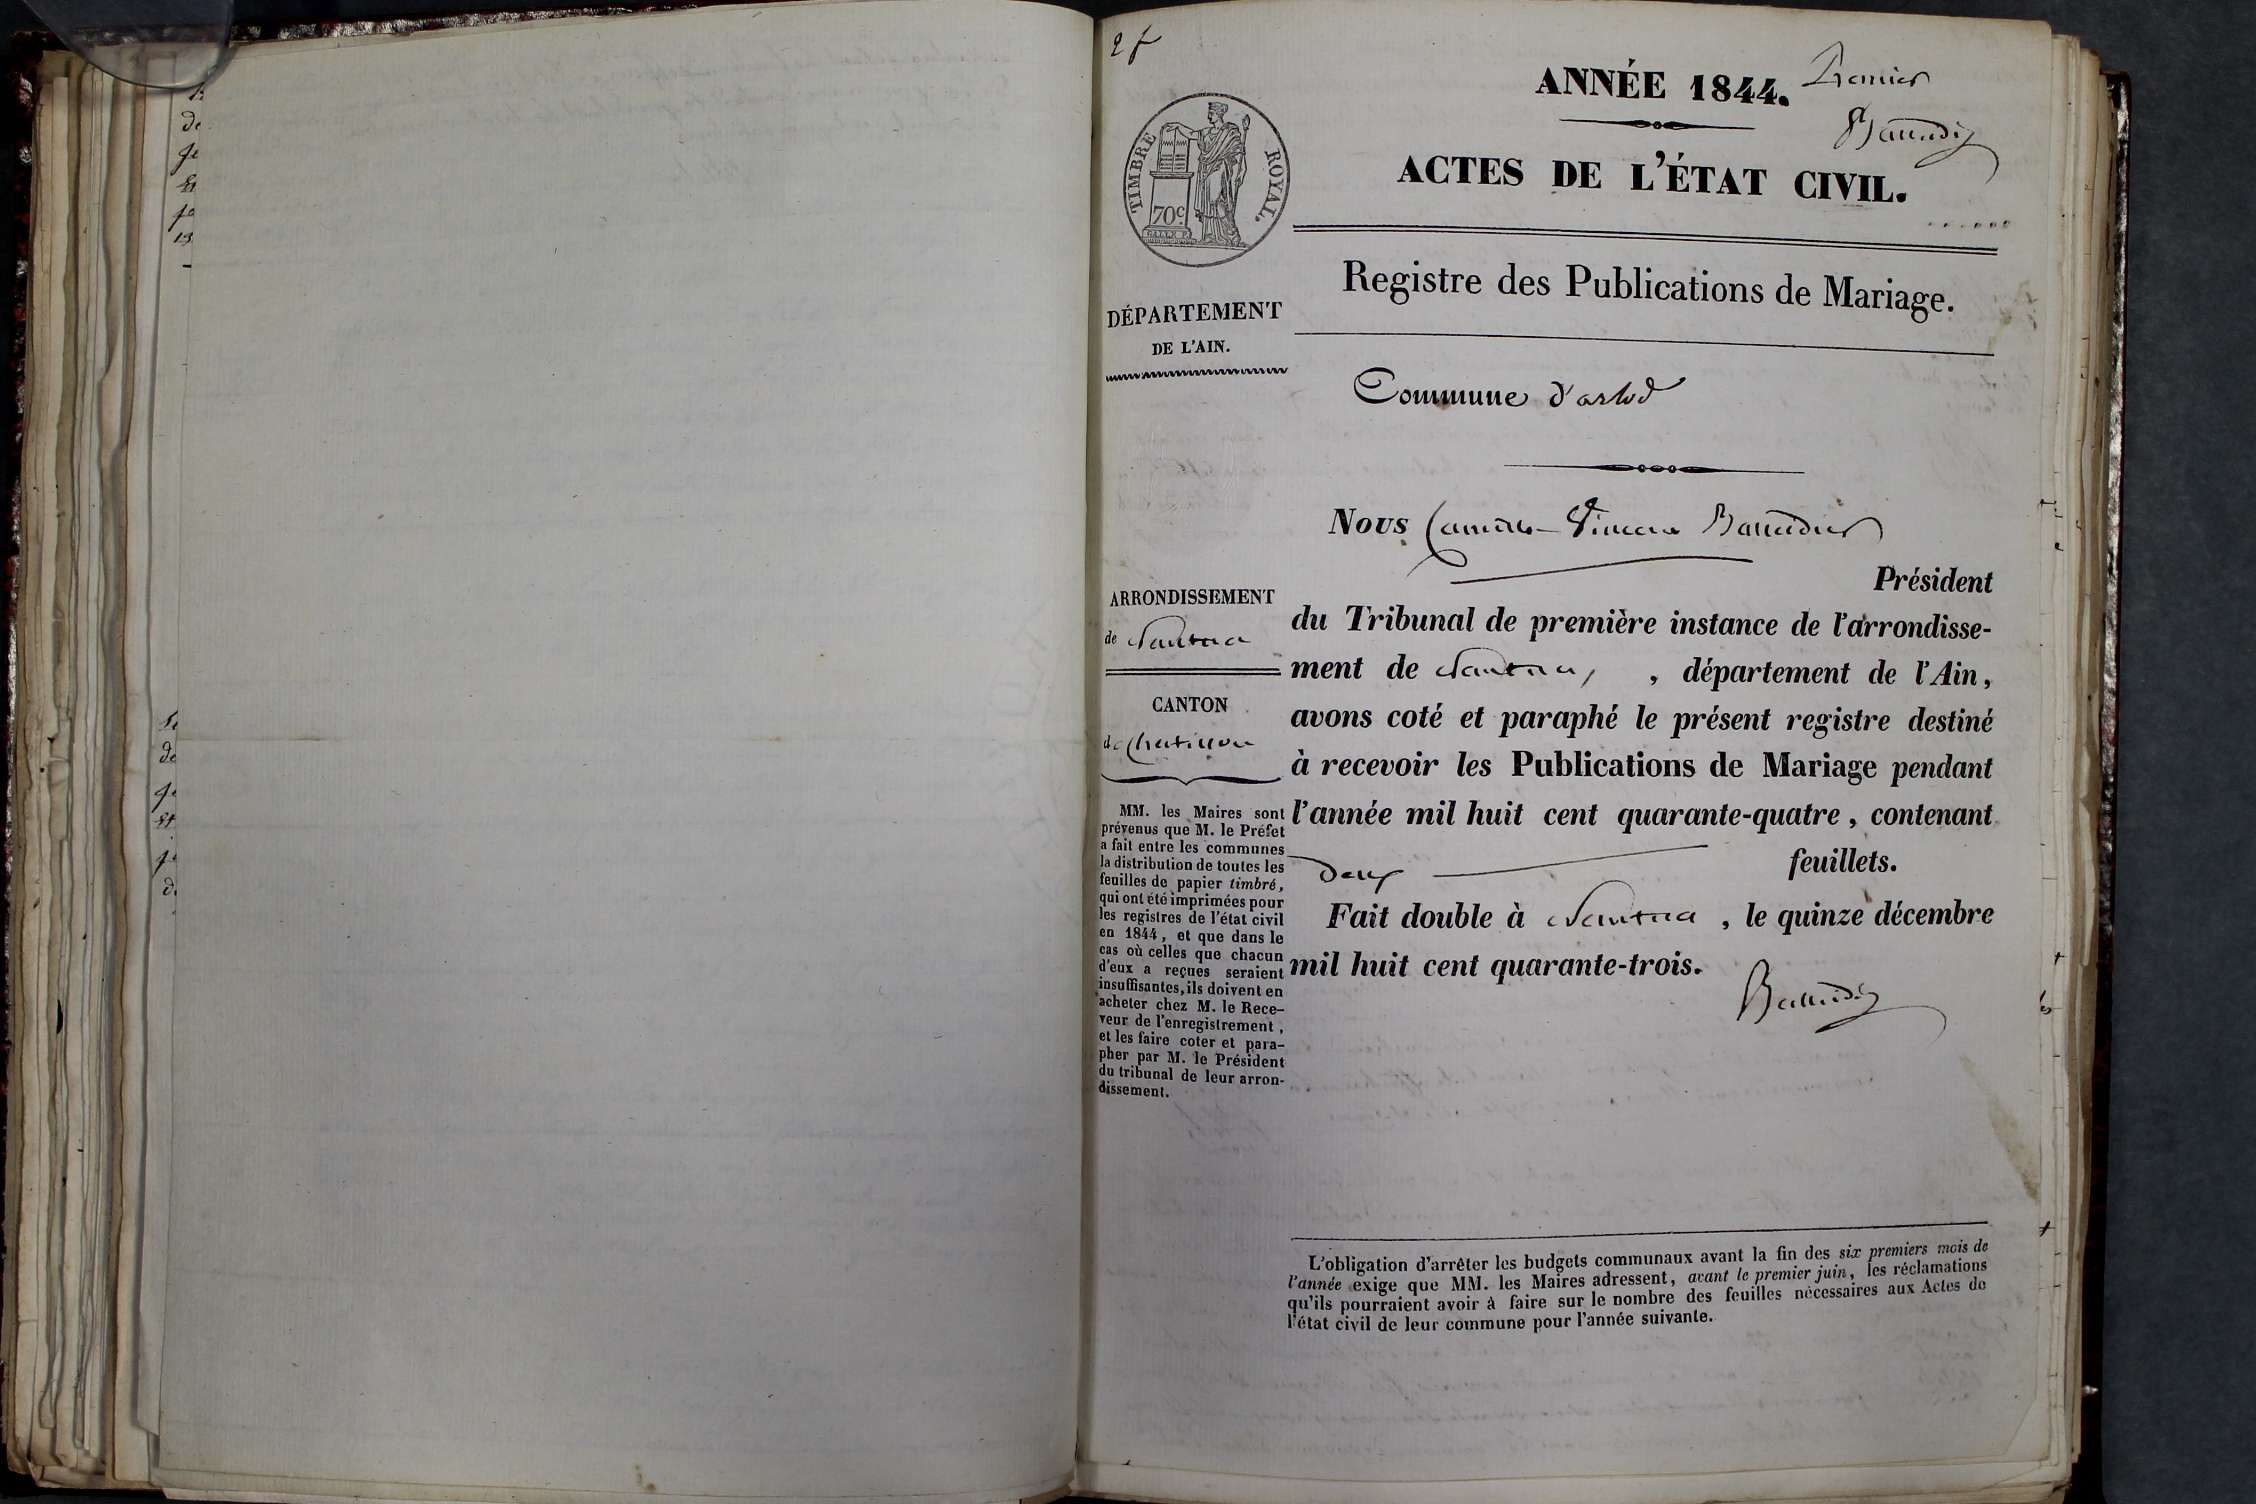 2 f
ANNÉE 1844.
Premier
TIMBRE ROYAL.
70c
ACTES DE L'ÉTAT CIVIL.
Registre des Publications de Mariage.
DÉPARTEMENT
DE L'AIN.
Commune d'arlod
Nous Camille Vincent
Président
du Tribunal de première instance de l'arrondisse-
ment de Nantua, , département de l'Ain,
avons coté et paraphé le présent registre destiné
à recevoir les Publications de Mariage pendant
l'année mil huit cent quarante-quatre, contenant
deux feuillets.
Fait double à Nantua, le quinze décembre
mil huit cent quarante-trois.
ARRONDISSEMENT
de Nantua
CANTON
de Chatillon
MM. les Maires sont
prévenus que M. le Préfet
a fait entre les communes
la distribution de toutes les
feuilles de papier timbré,
qui ont été imprimées pour
les registres de l'état civil
en 1844, et que dans le
cas où celles que chacun
d'eux a reçues seraient
insuffisantes, ils doivent en
acheter chez M. le Rece-
veur de l'enregistrement,
et les faire coter et para-
pher par M. le Président
du tribunal de leur arron-
dissement.
L'obligation d'arrêter les budgets communaux avant la fin des six premiers mois de
l'année exige que MM. les Maires adressent, avant le premier juin, les réclamations
qu'ils pourraient avoir à faire sur le nombre des feuilles nécessaires aux Actes de
l'état civil de leur commune pour l'année suivante.